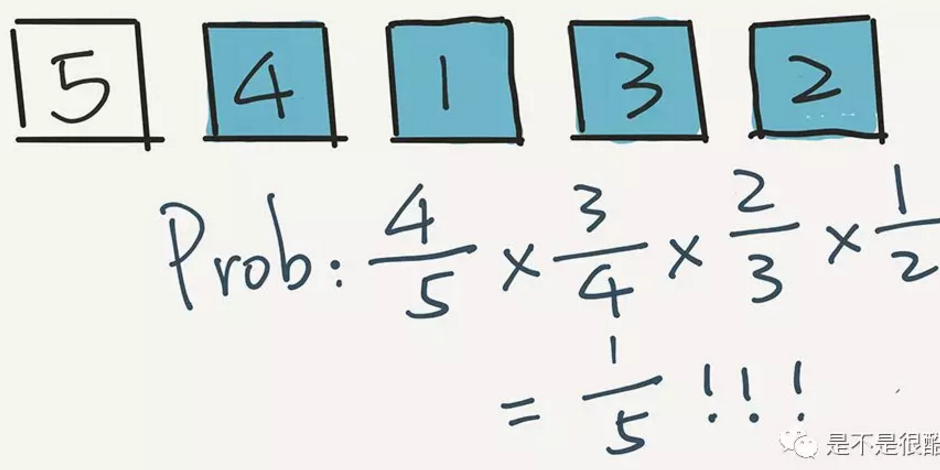 5 4 1 3 2
Prob: 4/5 × 3/4 × 2/3 × 1/2
= 1/5 !!!
是不是很酷